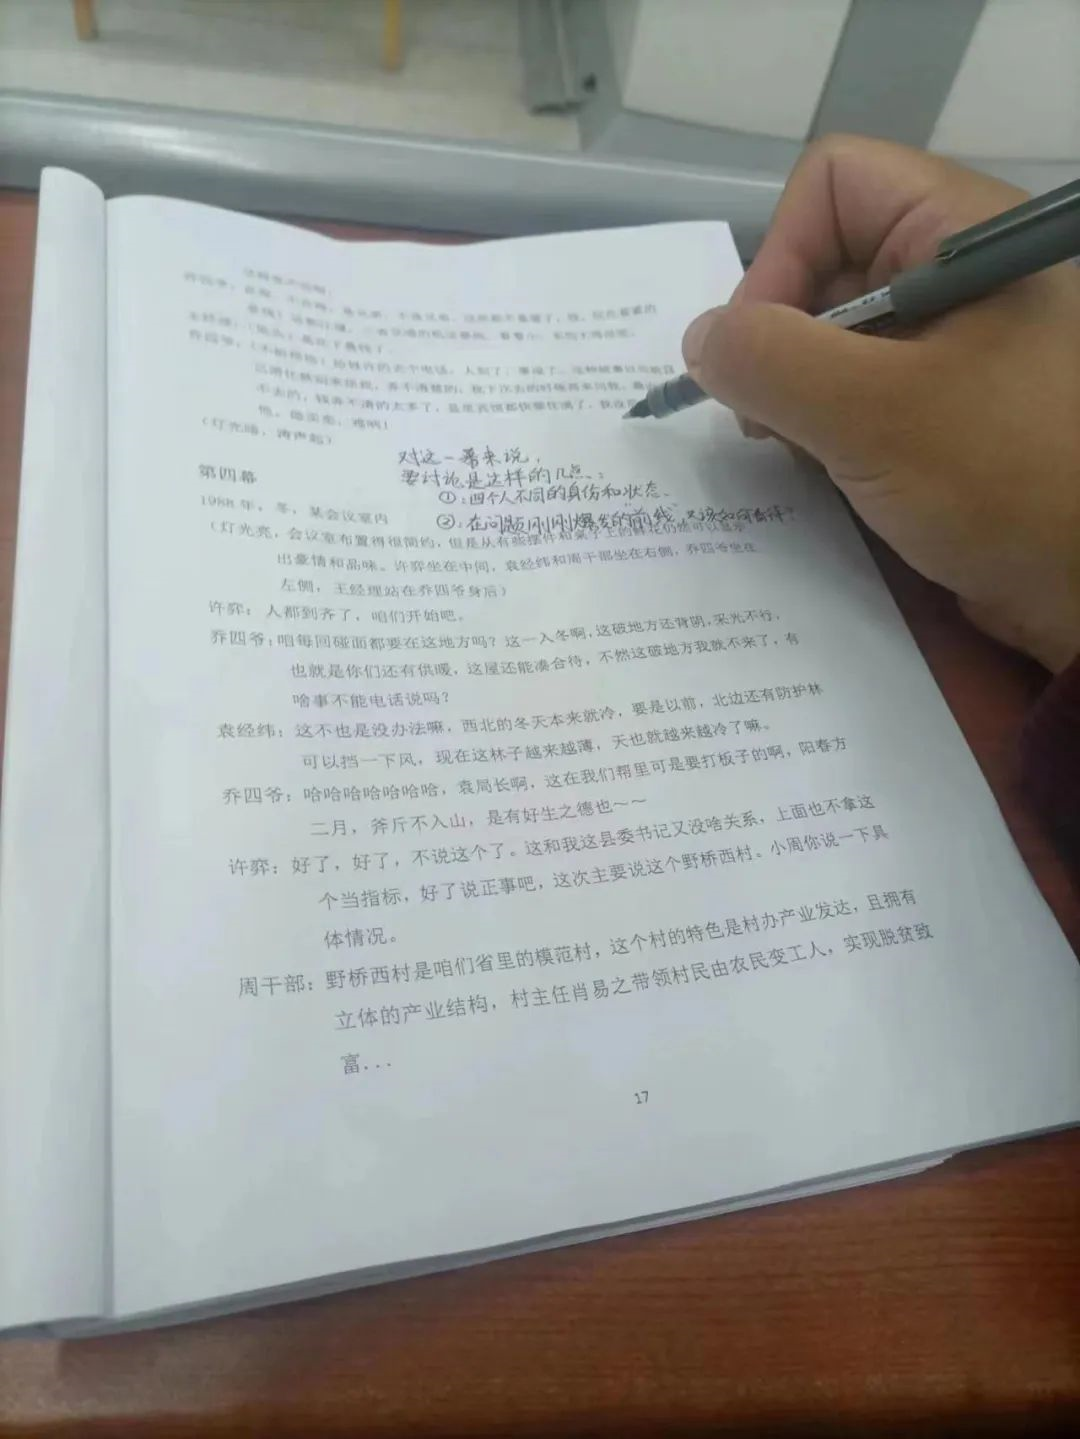 (灯光暗，涛声起)
对这一幕来说，
要讨论是这样的几点：
①：四个人不同的身份和状态、
②：在问题刚刚爆发的前线，又该如何看待？
第四幕
1988年，冬，某会议室内
(灯光亮，会议室布置得很简约，但是从有些摆件和桌子上的鲜花仍然可以显示
出豪情和品味。许弈坐在中间，袁经纬和周干部坐在右侧，乔四爷坐在
左侧，王经理站在乔四爷身后)
许弈：人都到齐了，咱们开始吧。
乔四爷：咱每回碰面都要在这地方吗？这一入冬啊，这破地方还背阴，采光不行，
也就是你们还有供暖，这屋还能凑合待，不然这破地方我就不来了，有
啥事不能电话说吗？
袁经纬：这不也是没办法嘛，西北的冬天本来就冷，要是以前，北边还有防护林
可以挡一下风，现在这林子越来越薄，天也就越来越冷了嘛。
乔四爷：哈哈哈哈哈哈哈，袁局长啊，这在我们帮里可是要打板子的啊，阳春方
二月，斧斤不入山，是有好生之德也～～
许弈：好了，好了，不说这个了。这和我这县委书记又没啥关系，上面也不拿这
个当指标，好了说正事吧，这次主要说这个野桥西村。小周你说一下具
体情况。
周干部：野桥西村是咱们省里的模范村，这个村的特色是村办产业发达，且拥有
立体的产业结构，村主任肖易之带领村民由农民变工人，实现脱贫致
富...
17